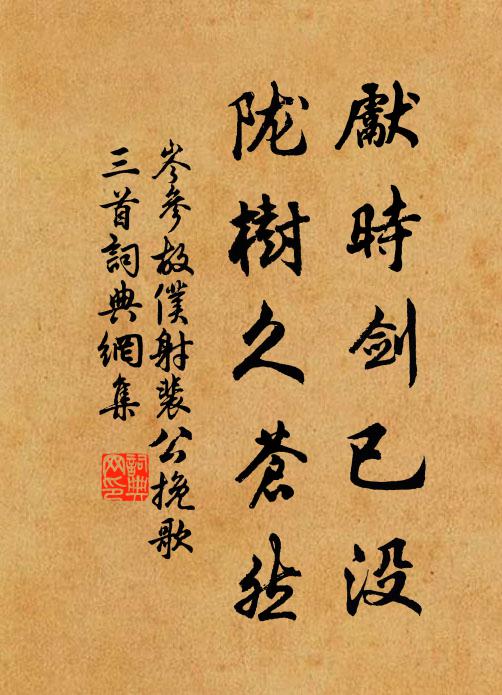 獻時剑已没
陇樹久蒼然
岑參故僕射裴公挽歌
三首詞典網集
詞典
网印